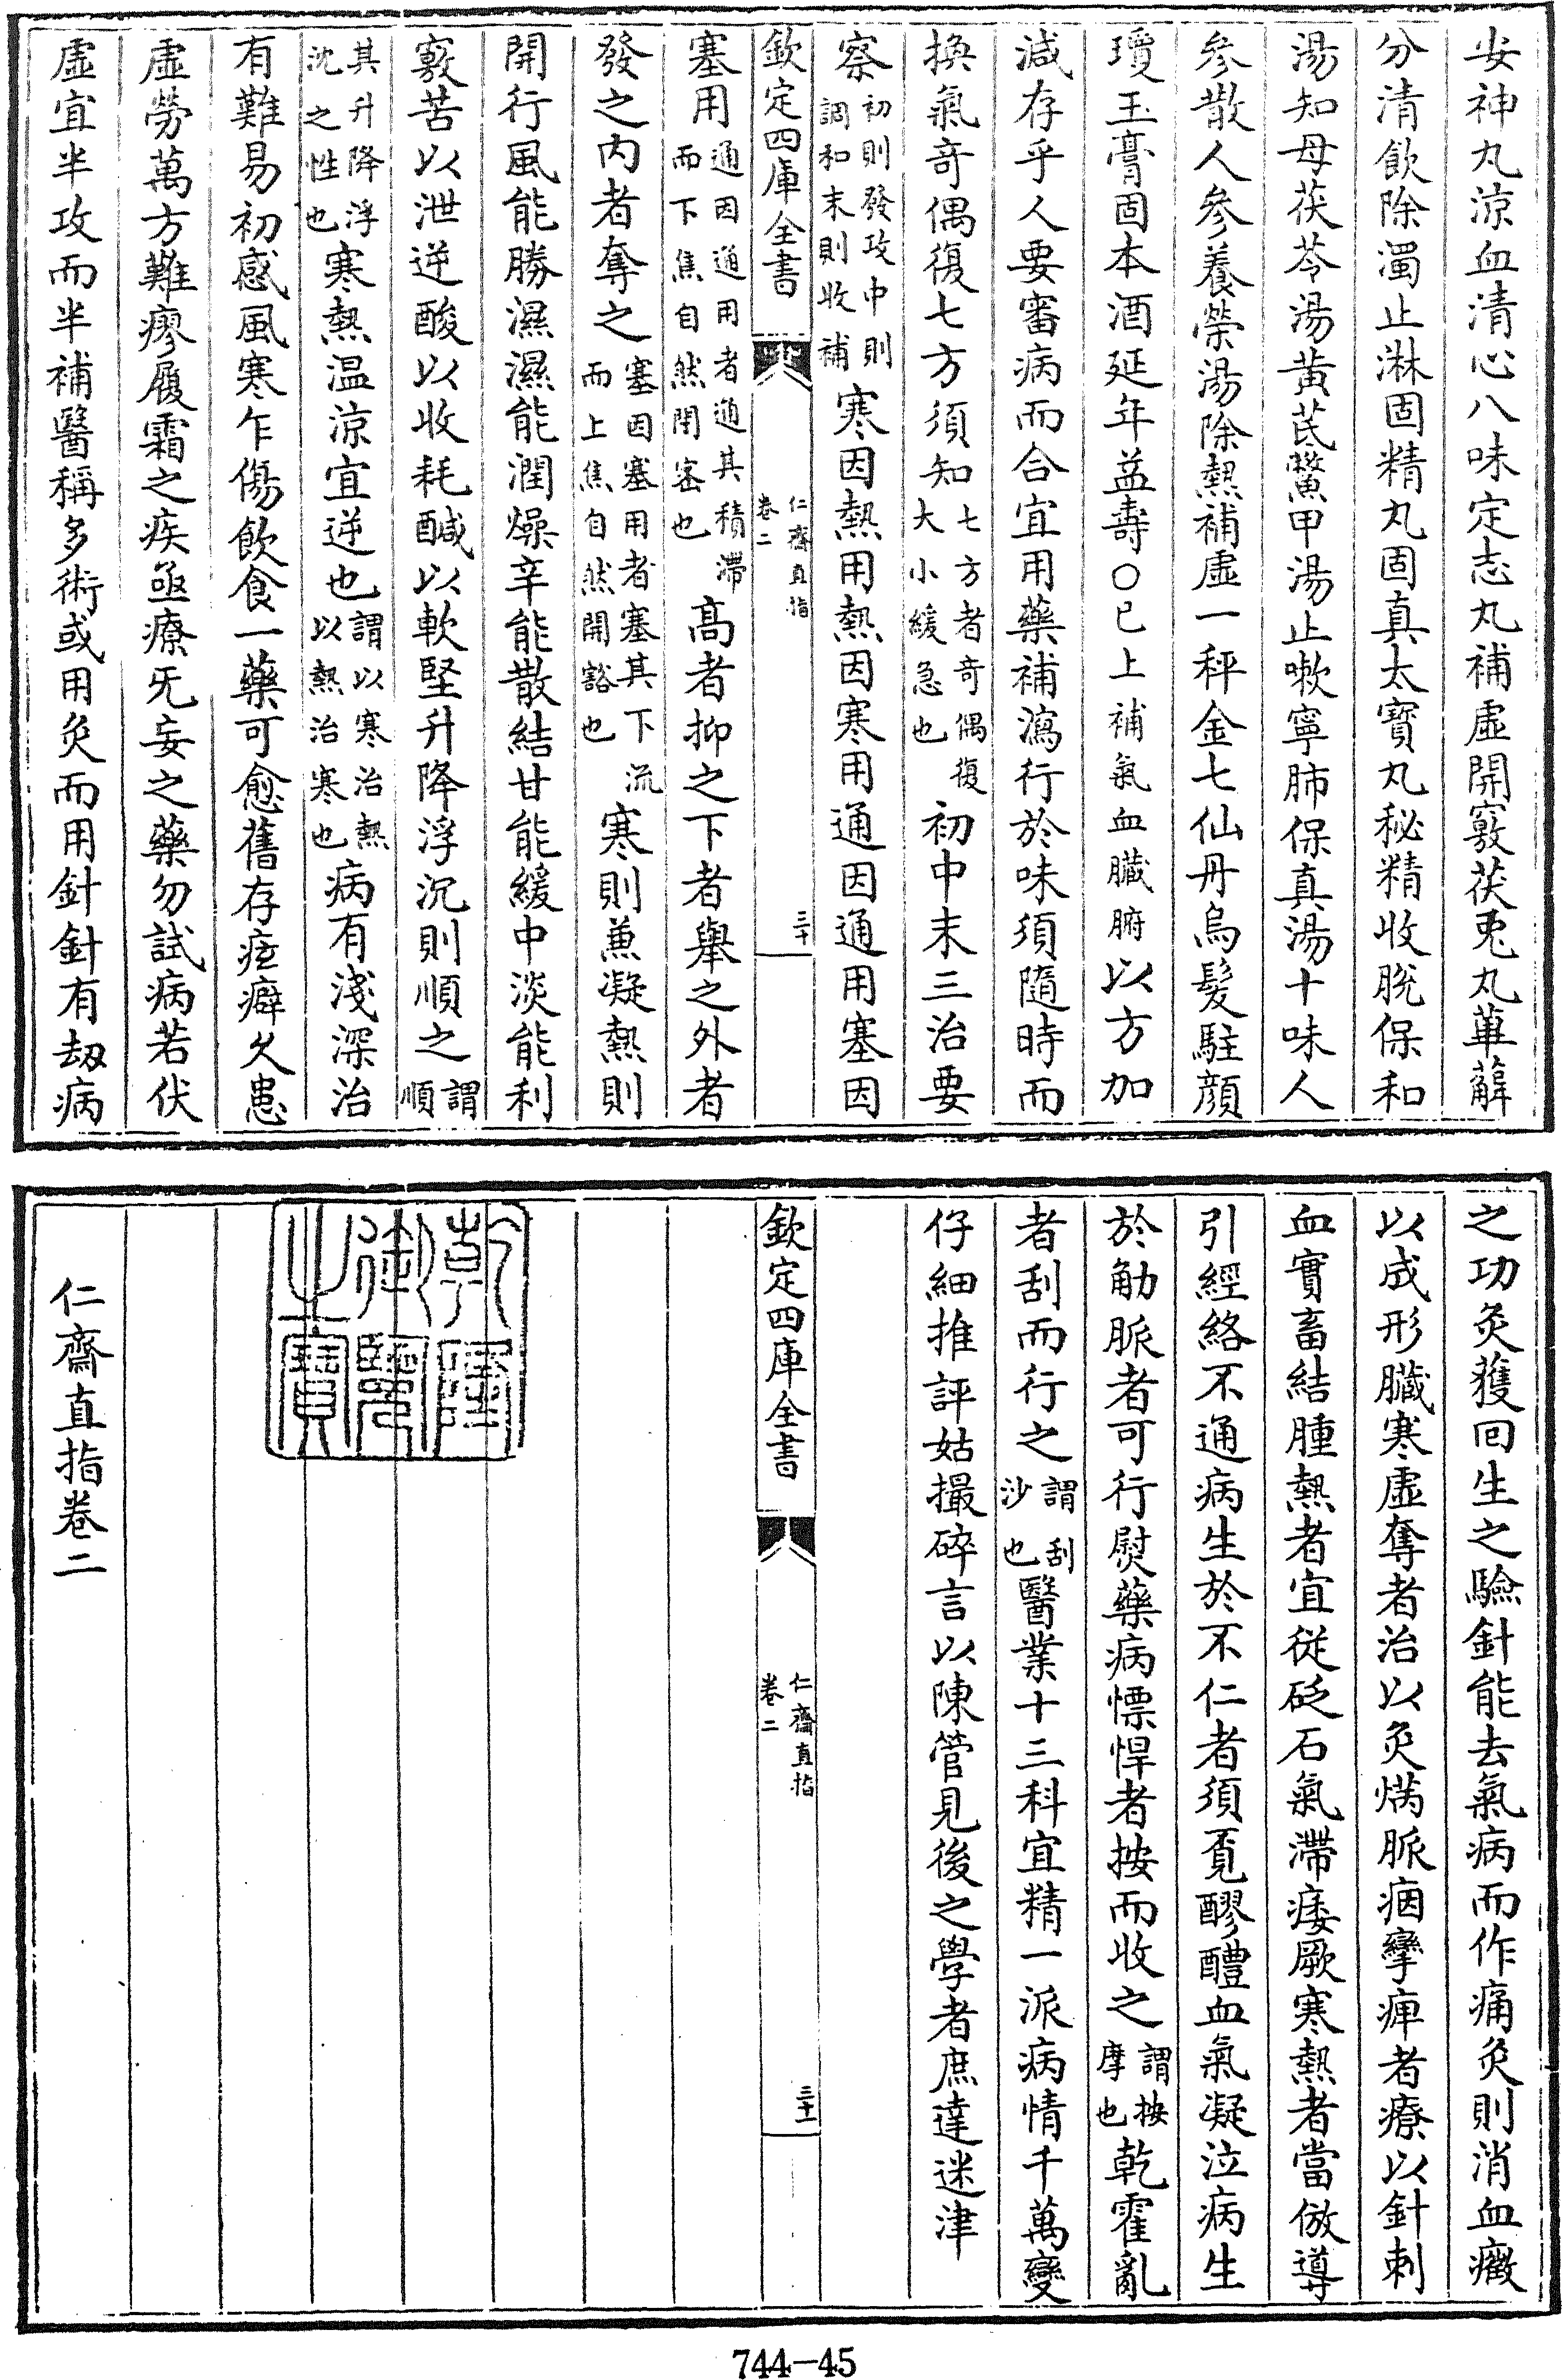 安神丸涼血清心八味定志丸補虛開竅茯兎丸萆薢
分清飲除濁止淋固精丸固真太寳丸秘精收脫保和
湯知母茯苓湯黄芪鱉甲湯止嗽寧肺保真湯十味人
參散人參養榮湯除熱補虛一秤金七仙丹烏髮駐顔
瓊玉膏固本酒延年益壽〇已上補氣血臟腑以方加
減存乎人要審病而合宜用藥補瀉行於味須隨時而
換氣奇偶復七方須知七方者奇偶復大小緩急也初中末三治要
察初則發攻中則調和末則收補寒因熱用熱因寒用通因通用塞因
欽定四庫全書 仁齋直指卷二 三十
塞用通因通用者通其積滯而下焦自然閉密也高者抑之下者舉之外者
發之内者奪之塞因塞用者塞其下流而上焦自然開豁也寒則兼凝熱則
開行風能勝濕濕能潤燥辛能散結甘能緩中淡能利
竅苦以泄逆酸以收耗醎以軟堅升降浮沉則順之謂順
其升降浮沈之性也寒熱温涼宜逆也謂以寒治熱以熱治寒也病有淺深治
有難易初感風寒乍傷飲食一藥可愈舊存痃癖久患
虛勞萬方難瘳履霜之疾亟療无妄之藥勿試病若伏
虛宜半攻而半補醫稱多術或用灸而用針針有刼病
之功灸獲回生之驗針能去氣病而作痛灸則消血癥
以成形臟寒虛奪者治以灸焫脈痼攣痺者療以針刺
血實畜結腫熱者宜從砭石氣滯痿厥寒熱者當倣導
引經絡不通病生於不仁者須覔醪醴血氣凝泣病生
於觔脈者可行熨藥病慓悍者按而收之謂按摩也乾霍亂
者刮而行之謂刮沙也醫業十三科宜精一派病情千萬變
仔細推評姑撮碎言以陳管見後之學者庶達迷津
欽定四庫全書 仁齋直指卷二 三十一
乾隆御覽之寳
仁齋直指卷二
744-45